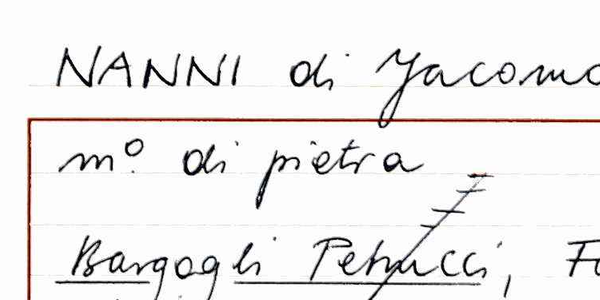 NANNI di Jacomo
m.º di pietra
Bargagli Petrucci,